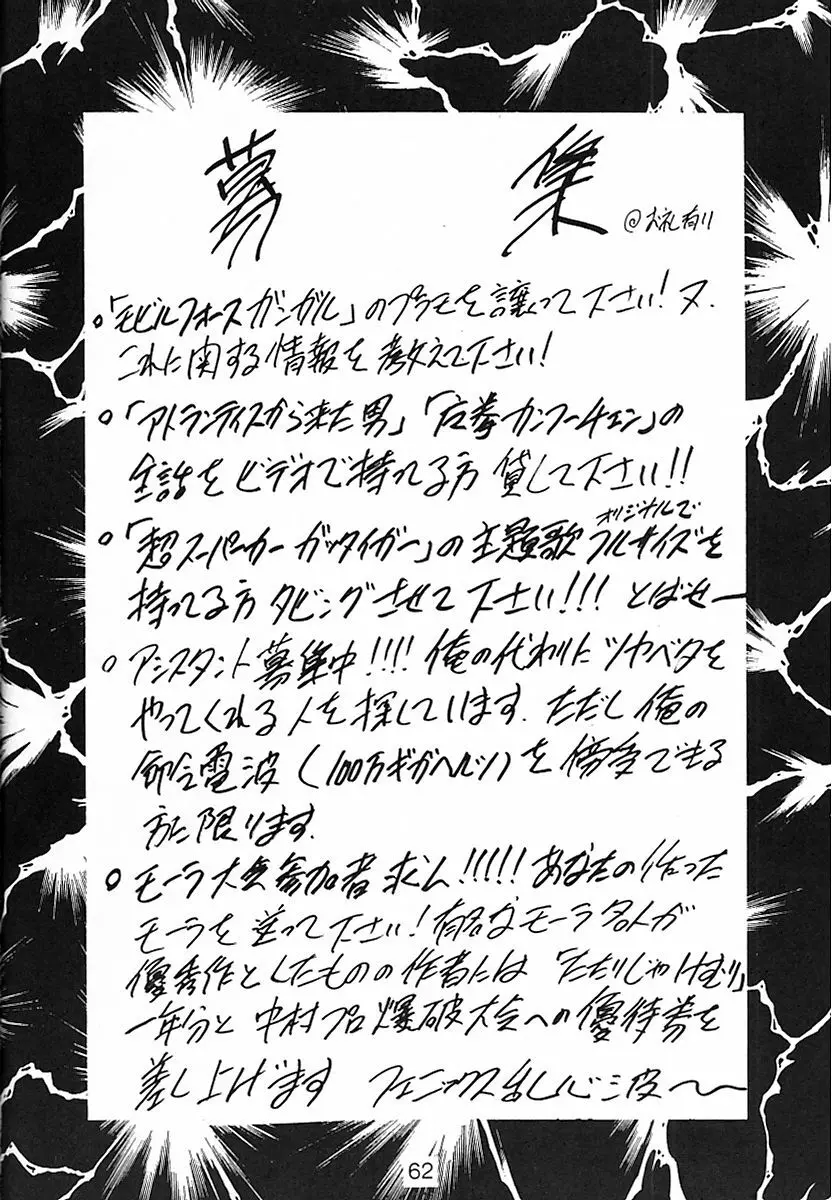 募集
@お礼有り
○「モビルフォースガンガル」のプラモを譲って下さい！又、
これに関する情報を教えて下さい！
○「アトランティスから来た男」「右拳カンフーチェン」の
全話をビデオで持ってる方貸して下さい！！
オリジナルで
○「超スーパーカーガッタイガー」の主題歌フルサイズを
持ってる方ダビングさせて下さい！！！とばせー
○アシスタント募集中！！！！俺の代わりにツヤベタを
やってくれる人を探しています．ただし俺の
命令電波（100万ギガヘルツ）を傍受できる
方に限ります．
○モーラ大会参加者求ム！！！！！あなたの作った
モーラを塗って下さい！有名なモーラ名人が
優秀作としたものの作者には「ただりじゃけむり」
一年分と中村プロ爆破大会への優待券を
差し上げます フェニックス乱心波〜〜
62